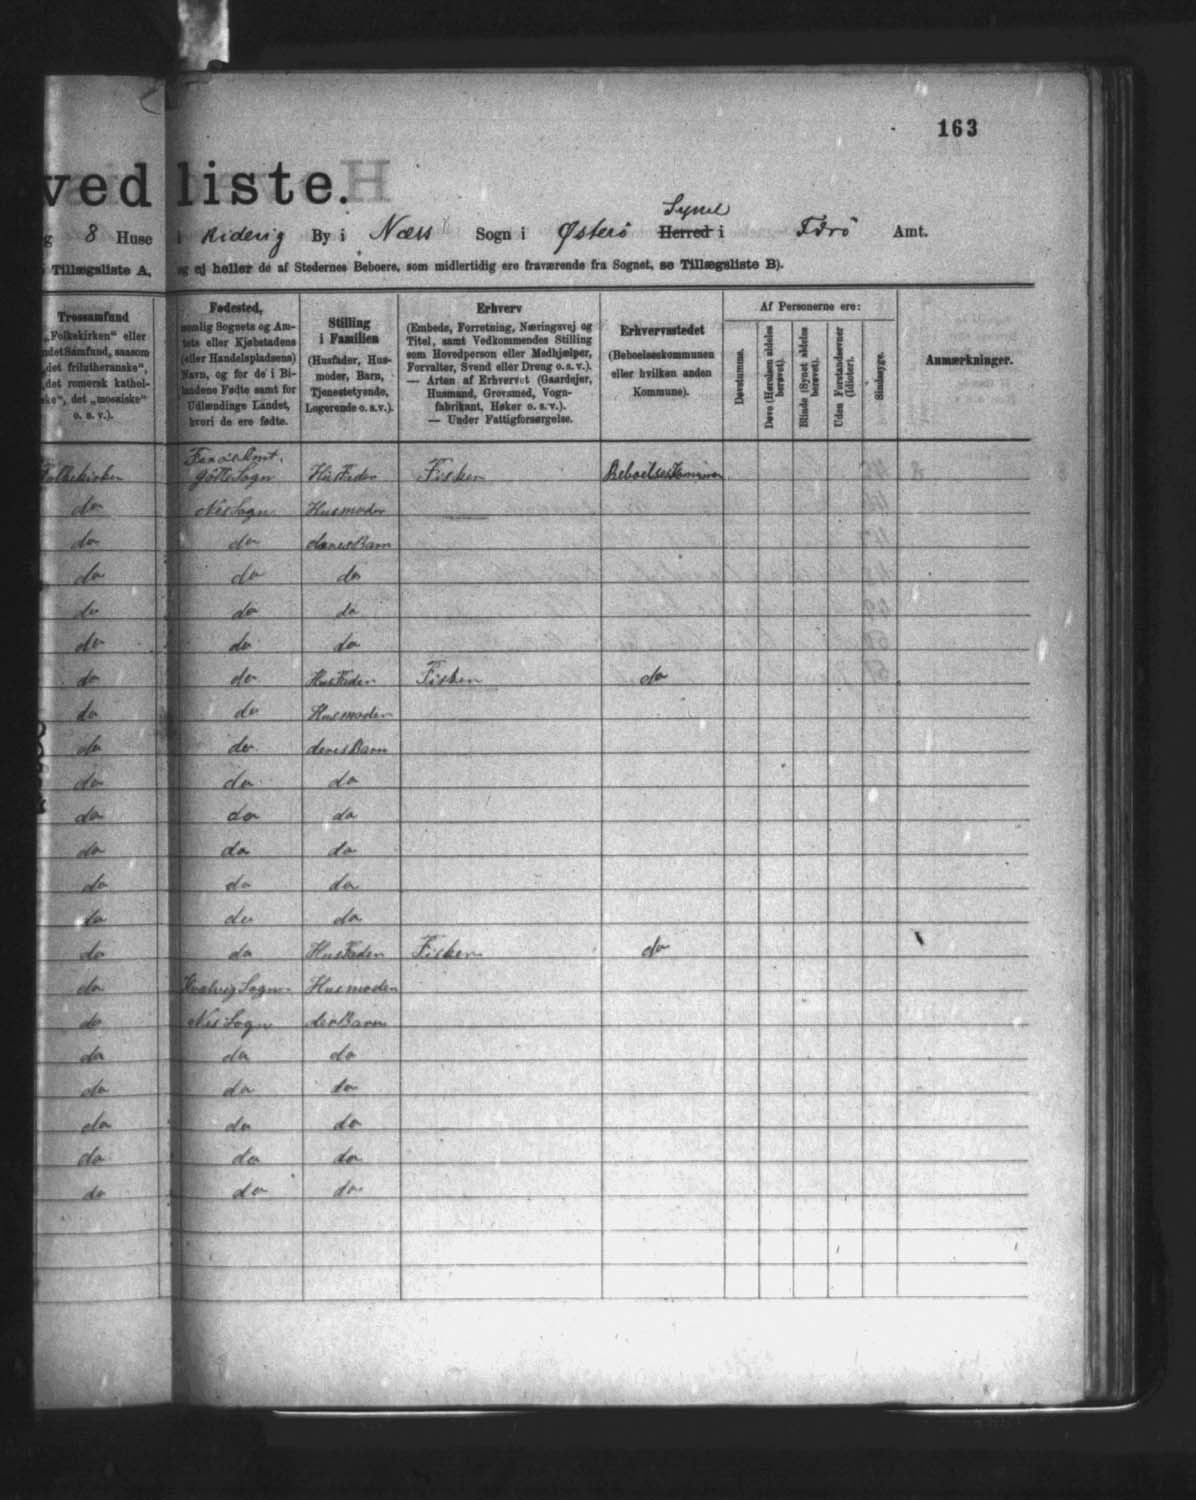 163
ved liste.
g 8 Huse i Riderig By i Næss Sogn i Østerø Herred Syssel i Færø Amt.
Tillægsliste A, og ej heller de af Stedernes Beboere, som midlertidig ere fraværende fra Sognet, se Tillægsliste B).
Trossamfund
„Folkekirken“ eller
ndet Samfund, saasom
„det frilutheranske“,
„det romersk kathol-
ske“, det „mosaiske“
o. s. v.).
Fødested,
nemlig Sognets og Am-
tets eller Kjøbstadens
(eller Handelspladsens)
Navn, og for de i Bi-
landene Fødte samt for
Udlændinge Landet,
hvori de ere fødte.
Stilling
i Familien
(Husfader, Hus-
moder, Barn,
Tjenestetyende,
Logerende o. s.v.).
Erhverv
(Embede, Forretning, Næringsvej og
Titel, samt Vedkommendes Stilling
som Hovedperson eller Medhjælper,
Forvalter, Svend eller Dreng o. s. v.).
— Arten af Erhvervet (Gaardejer,
Husmand, Grovsmed, Vogn-
fabrikant, Høker o. s. v.).
— Under Fattigforsørgelse.
Erhvervsstedet
(Beboelseskommunen
eller hvilken anden
Kommune).
Af Personerne ere:
Døvstumme.
Døve (Hørelsen aldeles
berøvet).
Blinde (Synet aldeles
berøvet).
Uden Forstandsevner
(Idioter).
Sindssyge.
Anmærkninger.
Færø Amt.
Folkekirken Gøtte Sogn Husfader Fisker Beboelseskommunen
do Nes Sogn Husmoder
do do deres Barn
do do do
do do do
do do do
do do Husfader Fisker do
do do Husmoder
do do deres Barn
do do do
do do do
do do do
do do do
do do do
do do Husfader Fisker do
do Kvalvig Sogn Husmoder
do Nes Sogn der Barn
do do do
do do do
do do do
do do do
do do do